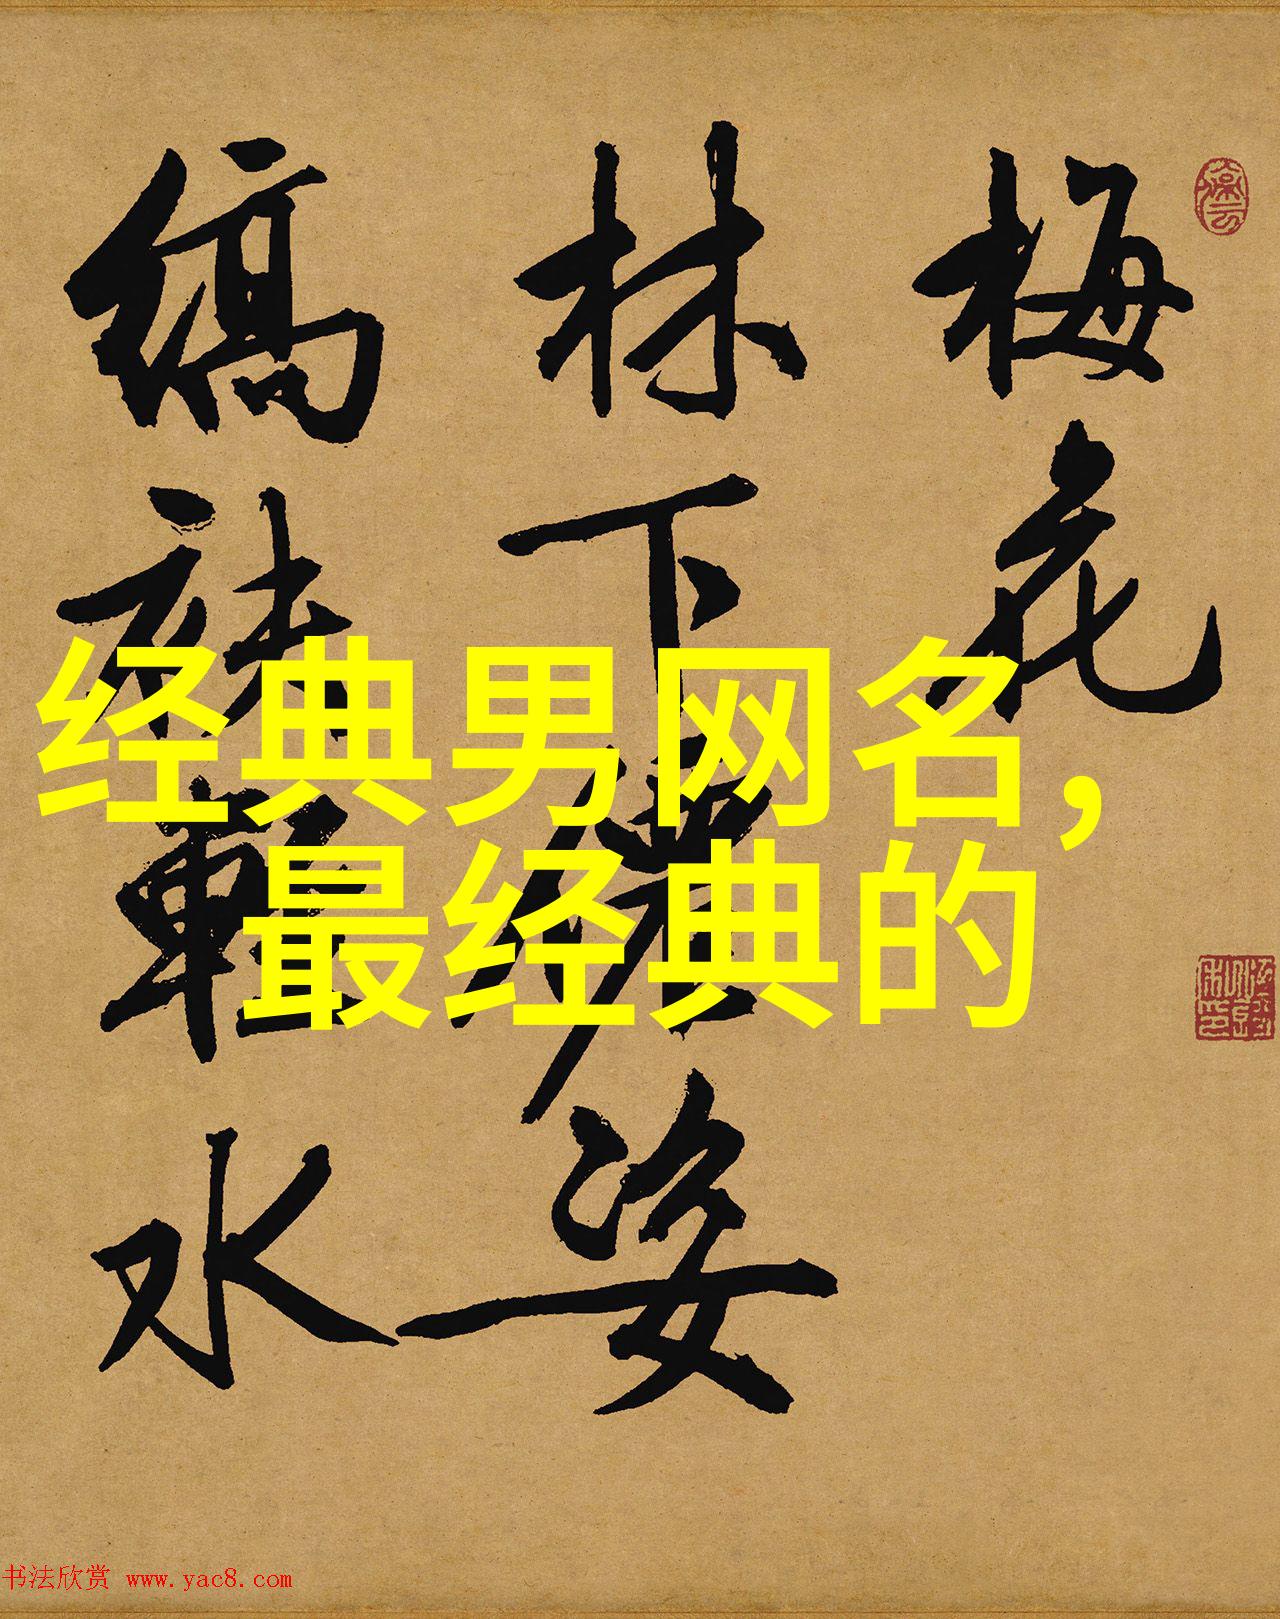 梅花
林下僊姿
縞袂輕水
经典男网名，
最经典的
书法欣赏 www.yac8.com